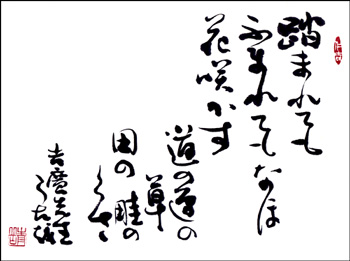 踏まれても
ふまれてもなほ
花咲かす
道の辺の
草
田の畦の
くさ
吉廣先生